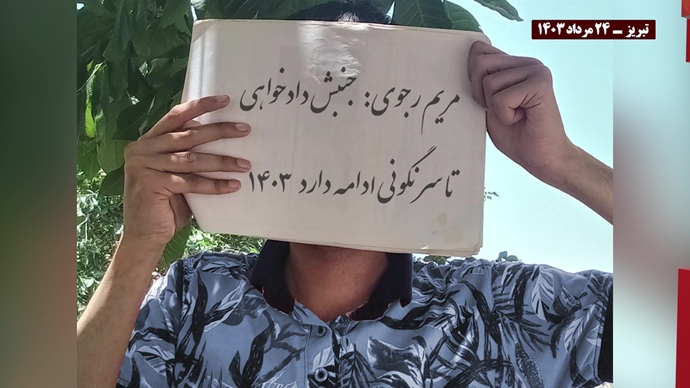 تبریز ــ ۲۴ مرداد ۱۴۰۳
مریم رجوی: جنبش دادخواهی
تا سرنگونی ادامه دارد ۱۴۰۳